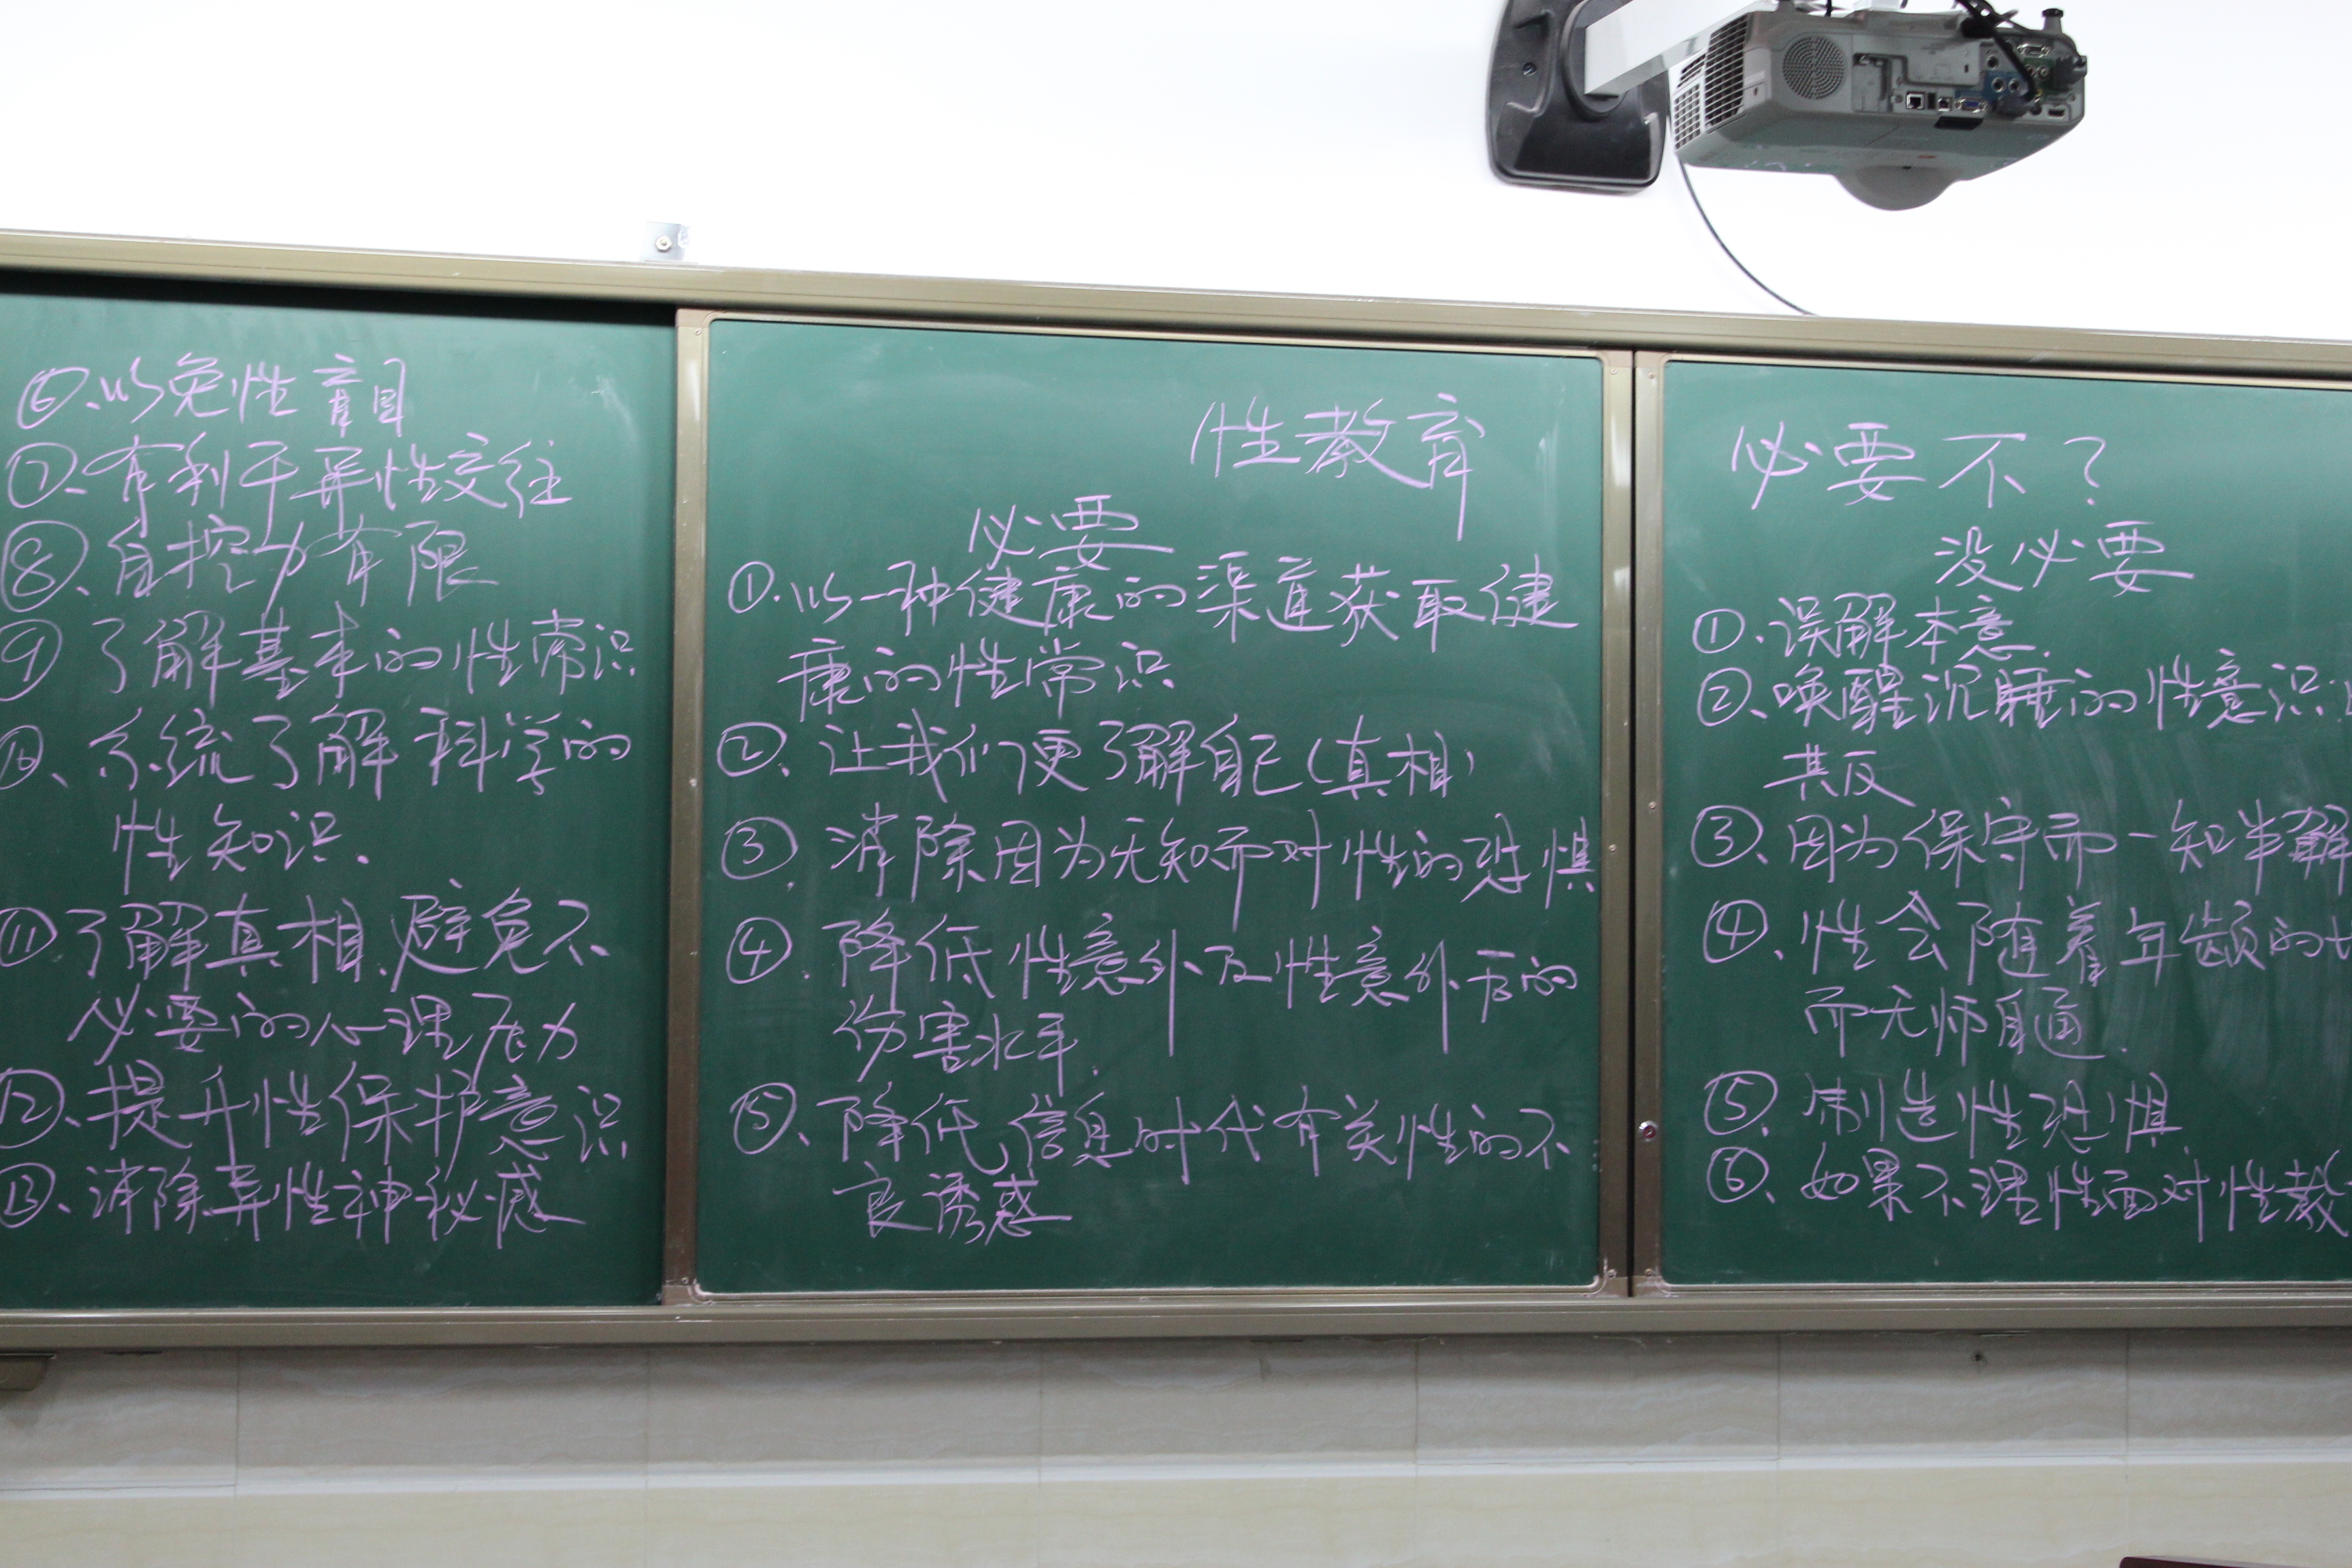 ⑥、以免性盲目
⑦、有利于异性交往
⑧、自控力有限
⑨了解基本的性常识
⑩、系统了解科学的
性知识.
⑪了解真相、避免不
必要的心理压力
⑫、提升性保护意识
⑬、消除异性神秘感
性教育
必要
①.以一种健康的渠道获取健
康的性常识.
②、让我们更了解自己(真相)
③、消除因为无知而对性的恐惧
④、降低性意外及性意外后的
伤害水平.
⑤、降低信息时代有关性的不
良诱惑
必要不?
没必要
①、误解本意.
②、唤醒沉睡的性意识
其反
③、因为保守而一知半解
④、性会随着年龄的
而无师自通.
⑤、制造性恐惧
⑥、如果不理性面对性教